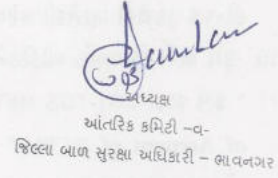 અધ્યક્ષ
આંતરિક કમિટી -વ-
જિલ્લા બાળ સુરક્ષા અધિકારી - ભાવનગર